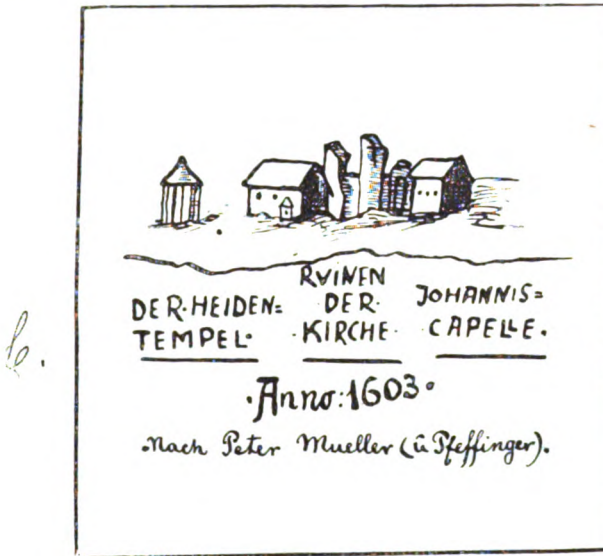 DER·HEIDEN=
TEMPEL·
RVINEN
DER·
·KIRCHE·
JOHANNIS=
CAPELLE.
·Anno:1603·
·Nach Peter Mueller (ũ Pfeffinger).
b.